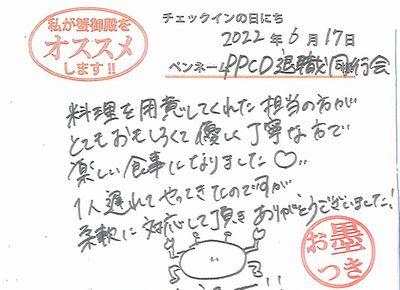 私が蟹御殿を
オススメ
します!!
チェックインの日にち
2022年6月17日
ペンネーム PPCD退職同行会
料理を用意してくれた担当の方が
とてもおもしろくて優しく丁寧な方で
楽しい食事になりました♡
1人遅れてやってきたのですが
柔軟に対応して頂きありがとうございました!
お墨
つき